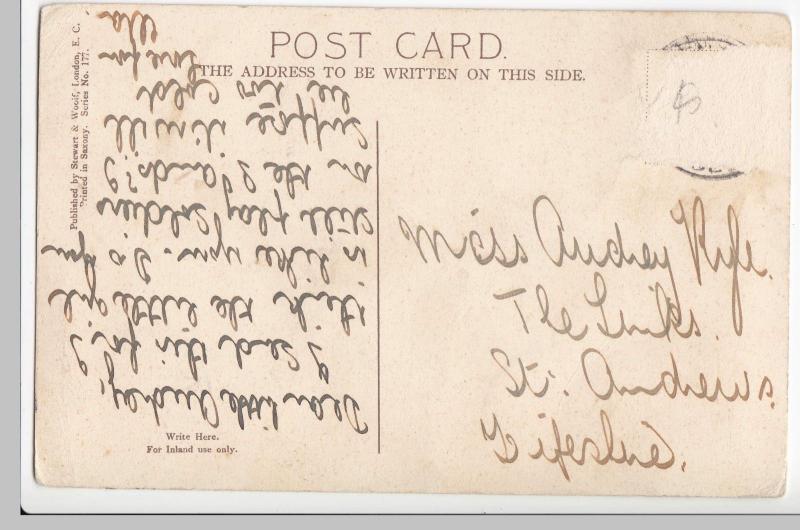 POST CARD.
THE ADDRESS TO BE WRITTEN ON THIS SIDE.
Published by Stewart & Woolf, London, E. C.
Printed in Saxony. Series No. 177.
Write Here.
For Inland use only.
Dear little Audrey,
I send this for I
think the little girl
is like you. Do you
still play soldiers
on the Sands?
Suppose it will
be too cold
Love from
Miss Audrey
The Links.
St. Andrews.
Fifeshire.